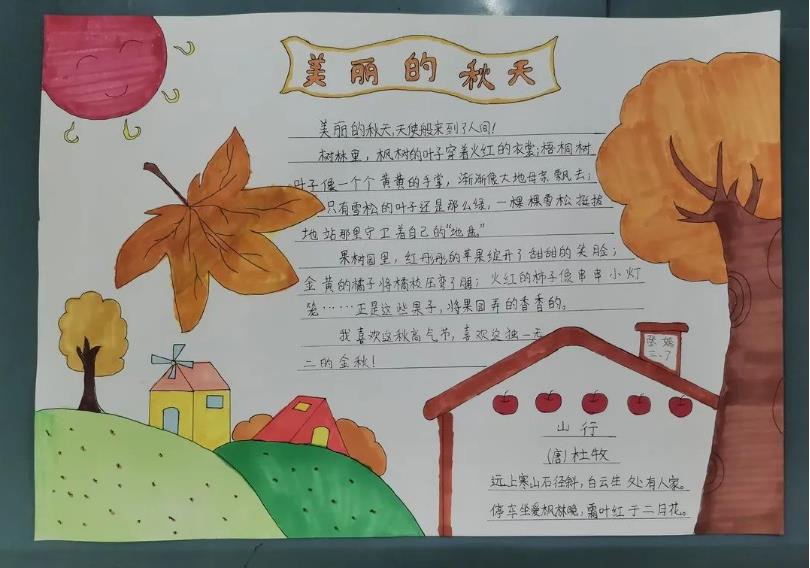 美丽的秋天
美丽的秋天,天使般来到了人间!
树林里,枫树的叶子穿着火红的衣裳;梧桐树
叶子像一个个黄黄的手掌,渐渐像大地母亲飘去;
只有雪松的叶子还是那么绿,一棵棵雪松挺拔
地站那里守卫着自己的"地盘"
果树园里,红彤彤的苹果绽开了甜甜的笑脸;
金黄的橘子将橘枝压弯了腰;火红的柿子像串串小灯
笼……正是这些果子,将果园弄的香香的。
我喜欢这秋高气节,喜欢这独一无
二的金秋!
三.7
山行
(唐)杜牧
远上寒山石径斜,白云生处有人家。
停车坐爱枫林晚,霜叶红于二月花。